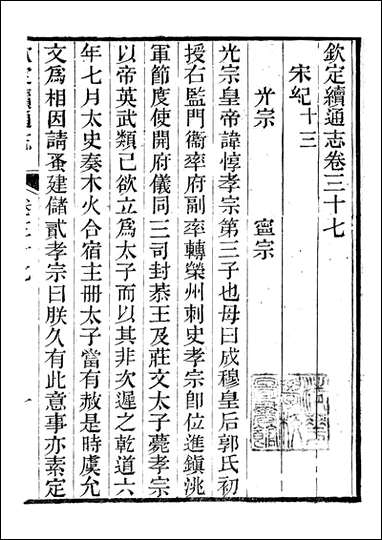 欽定續通志卷三十七
宋紀十三
光宗 寧宗
光宗皇帝諱惇孝宗第三子也母曰成穆皇后郭氏初
授右監門衞率府副率轉榮州刺史孝宗卽位進鎭洮
軍節度使開府儀同三司封恭王及莊文太子薨孝宗
以帝英武類已欲立爲太子而以其非次遲之乾道六
年七月太史奏木火合宿主冊太子當有赦是時虞允
文爲相因請蚤建儲貳孝宗曰朕久有此意事亦素定